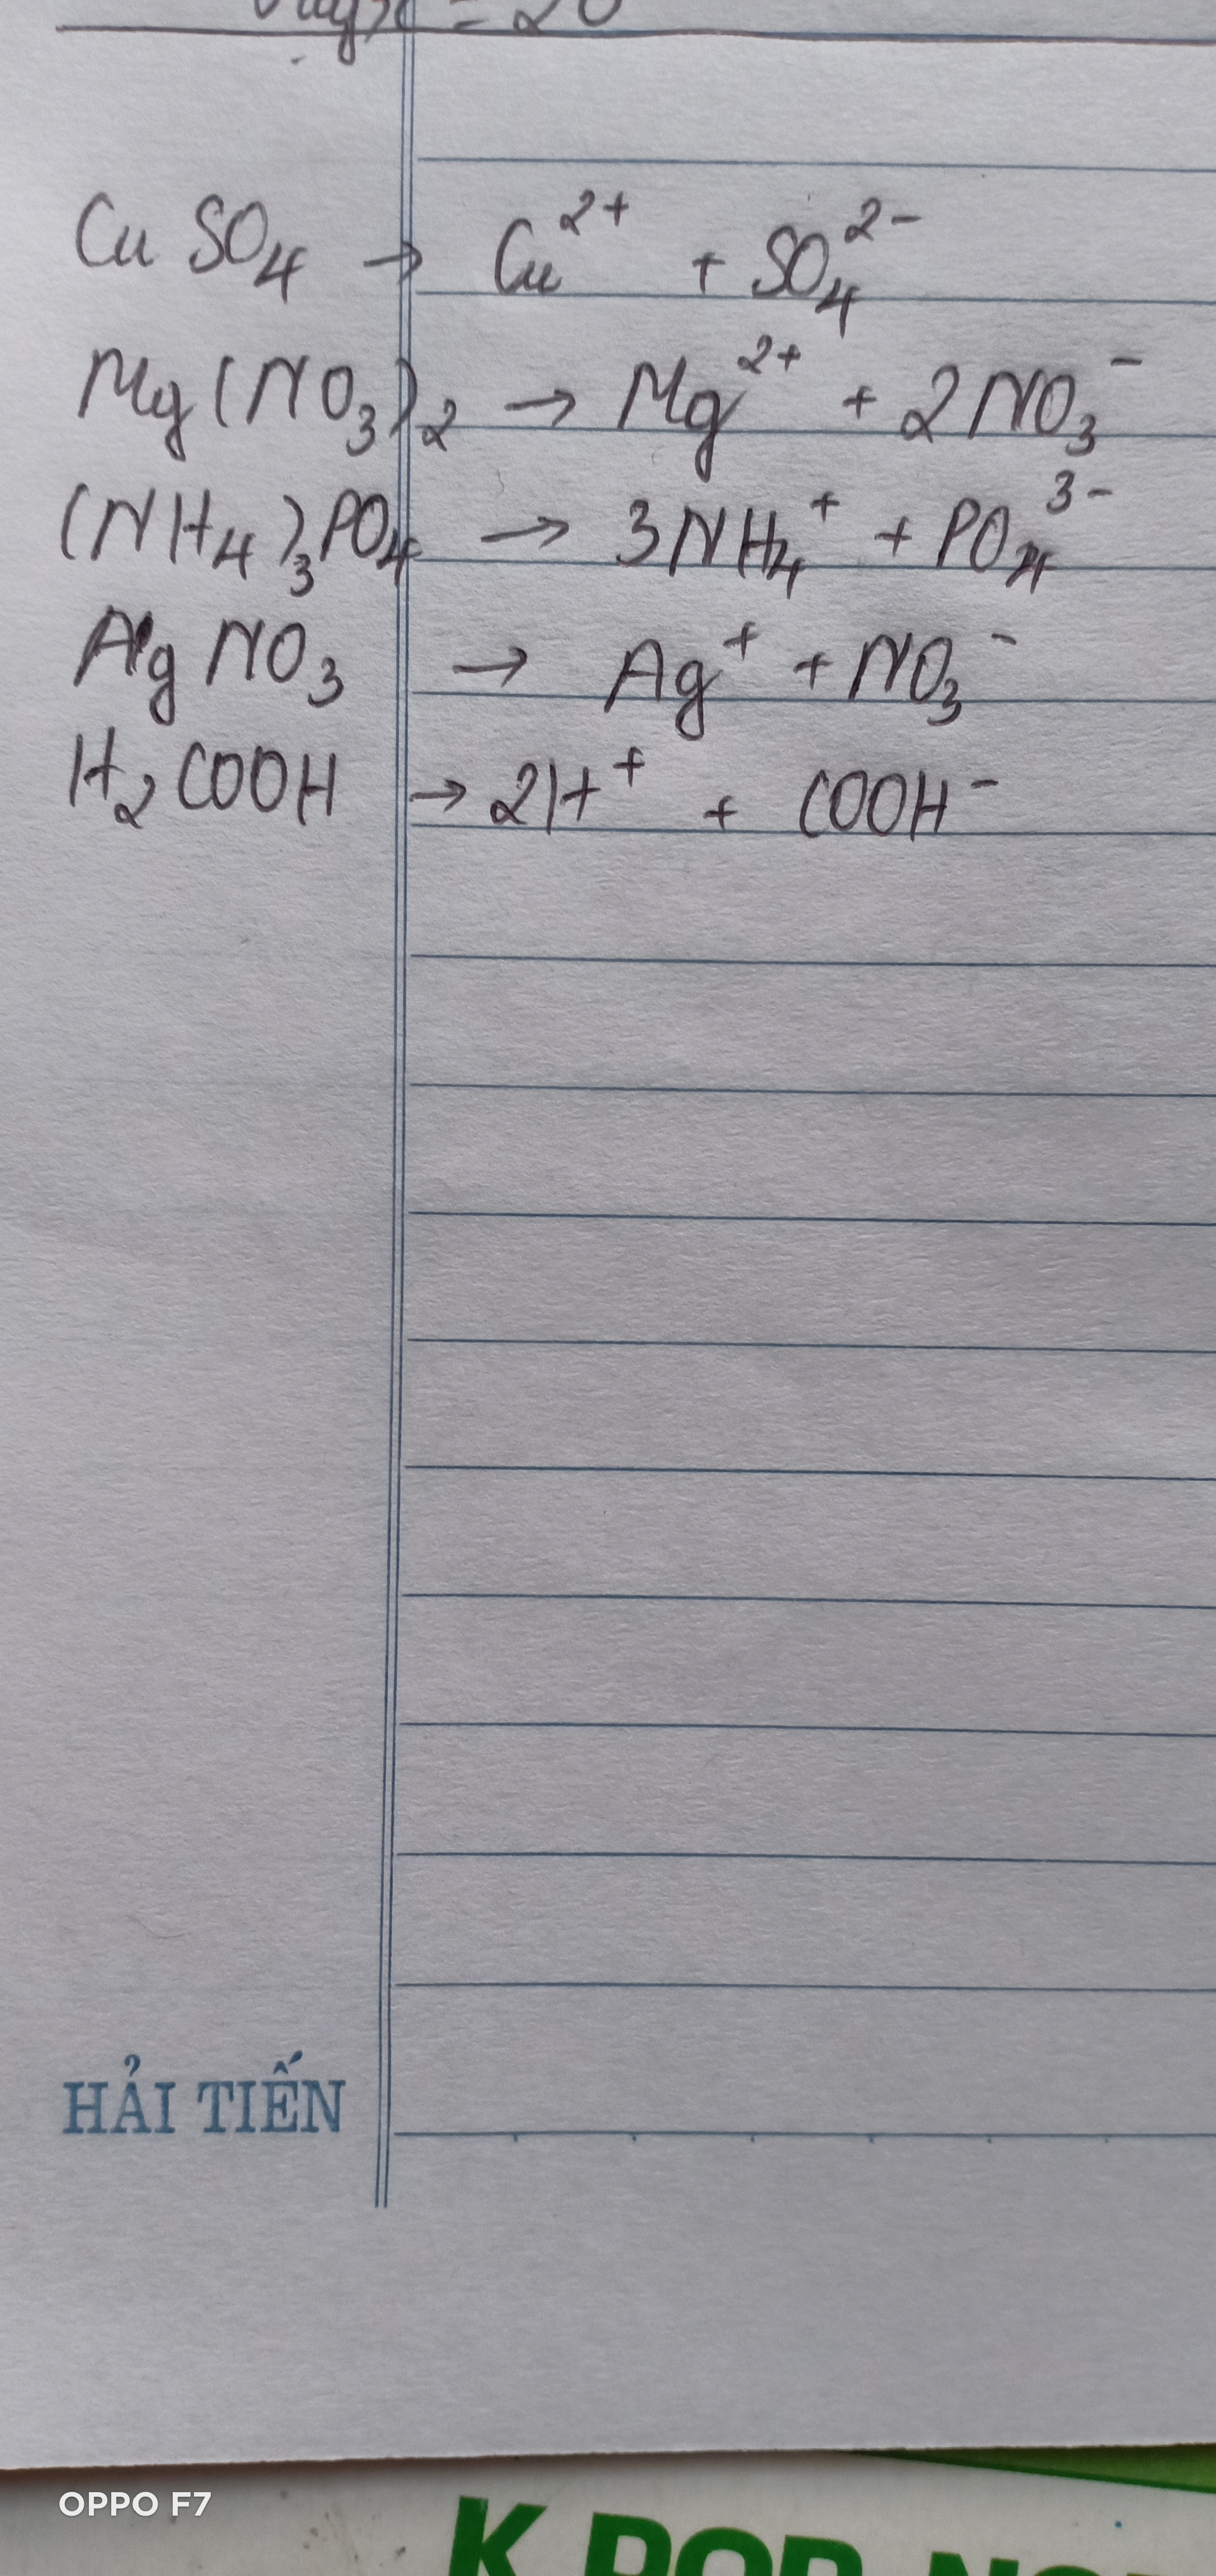 = 20
CuSO₄ → Cu²⁺ + SO₄²⁻
Mg(NO₃)₂ → Mg²⁺ + 2NO₃⁻
(NH₄)₃PO₄ → 3NH₄⁺ + PO₄³⁻
AgNO₃ → Ag⁺ + NO₃⁻
H₂COOH → 2H⁺ + COOH⁻
HẢI TIẾN
OPPO F7
K POP